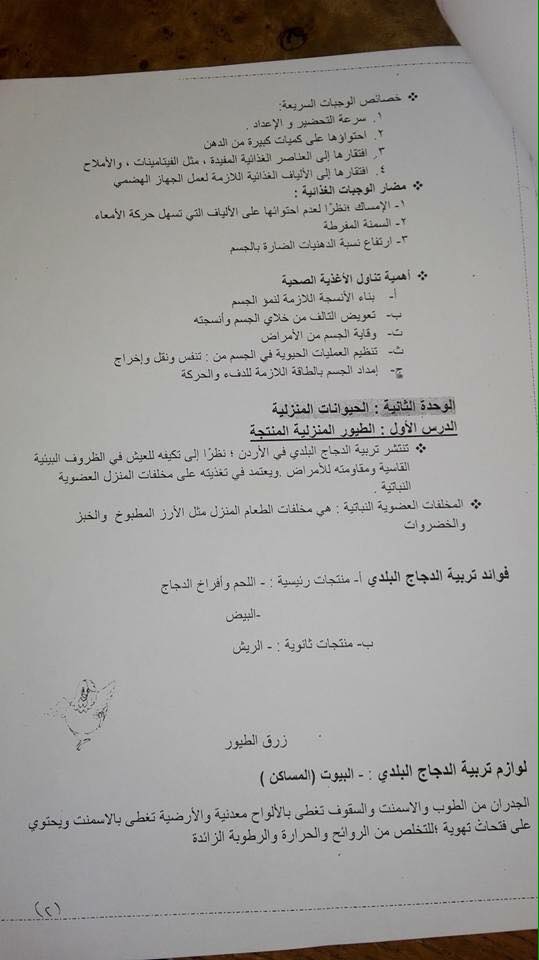 ❖ خصائص الوجبات السريعة:
١. سرعة التحضير و الإعداد .
٢. احتواؤها على كميات كبيرة من الدهن
٣. افتقارها إلى العناصر الغذائية المفيدة ، مثل الفيتامينات ، والأملاح
٤. افتقارها إلى الألياف الغذائية اللازمة لعمل الجهاز الهضمي
❖ مضار الوجبات الغذائية :
١- الإمساك ؛نظرًا لعدم احتوائها على الألياف التي تسهل حركة الأمعاء
٢- السمنة المفرطة
٣- ارتفاع نسبة الدهنيات الضارة بالجسم
❖ أهمية تناول الأغذية الصحية
أ- بناء الأنسجة اللازمة لنمو الجسم
ب- تعويض التالف من خلاي الجسم وأنسجته
ت- وقاية الجسم من الأمراض
ث- تنظيم العمليات الحيوية في الجسم من : تنفس ونقل وإخراج
ج- إمداد الجسم بالطاقة اللازمة للدفء والحركة
الوحدة الثانية : الحيوانات المنزلية
الدرس الأول : الطيور المنزلية المنتجة
❖ تنتشر تربية الدجاج البلدي في الأردن ؛ نظرًا إلى تكيفه للعيش في الظروف البيئية
القاسية ومقاومته للأمراض .ويعتمد في تغذيته على مخلفات المنزل العضوية
النباتية .
❖ المخلفات العضوية النباتية : هي مخلفات الطعام المنزل مثل الأرز المطبوخ والخبز
والخضروات
فوائد تربية الدجاج البلدي أ- منتجات رئيسية : - اللحم وأفراخ الدجاج
-البيض
ب- منتجات ثانوية : - الريش
زرق الطيور
لوازم تربية الدجاج البلدي : - البيوت (المساكن )
الجدران من الطوب والاسمنت والسقوف تغطى بالألواح معدنية والأرضية تغطى بالاسمنت ويحتوي
على فتحات تهوية ؛للتخلص من الروائح والحرارة والرطوبة الزائدة
(٢)